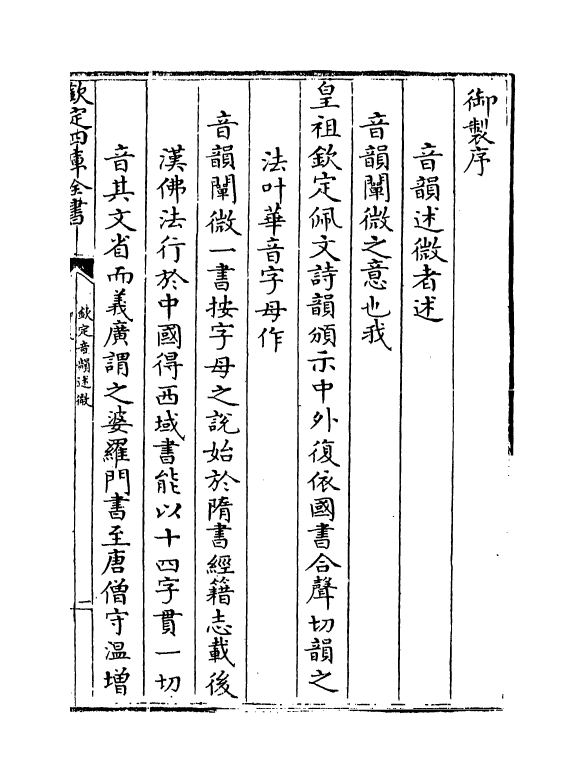 御製序
音韻述微者述
音韻闡微之意也我
皇祖欽定佩文詩韻頒示中外復依國書合聲切韻之
法叶華音字母作
音韻闡微一書按字母之說始於隋書經籍志載後
漢佛法行於中國得西域書能以十四字貫一切
音其文省而義廣謂之婆羅門書至唐僧守溫增
欽定四庫全書
欽定音韻述微
二